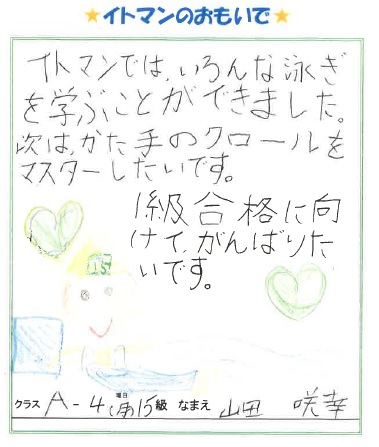 ★イトマンのおもいで★
イトマンでは、いろんな泳ぎ
を学ぶことができました。
次は、かた手のクロールを
マスターしたいです。
1級合格に向
けて、がんばりた
いです。
15
クラス A-4 曜日(月) 15級 なまえ 山田 咲幸